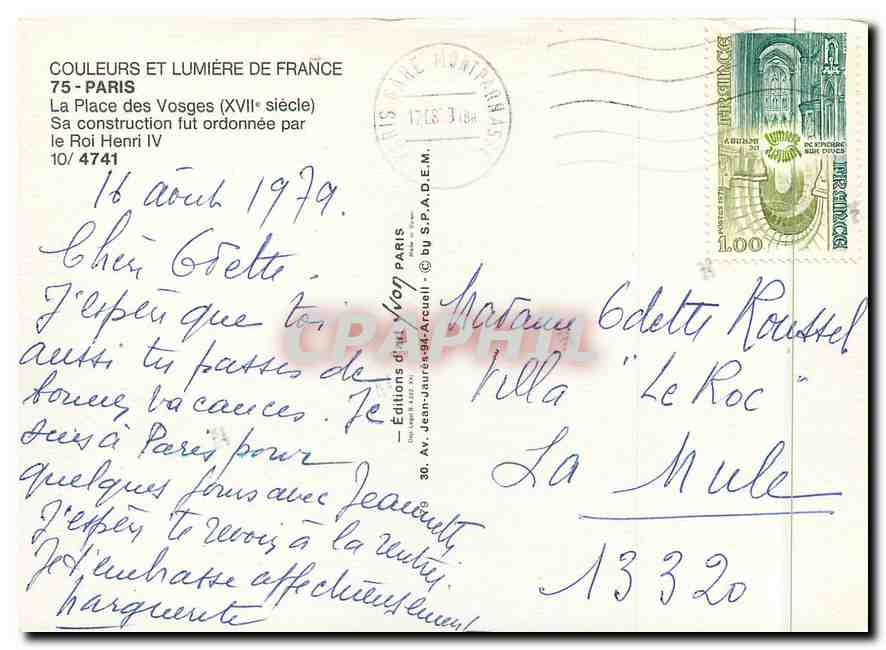 COULEURS ET LUMIÈRE DE FRANCE
75 - PARIS
La Place des Vosges (XVIIe siècle)
Sa construction fut ordonnée par
le Roi Henri IV
10/ 4741
16 août 1979.
Chère Odette.
J'espère que toi
aussi tu passes de
bonnes vacances. Je
suis à Paris pour
quelques jours avec Jeannette
J'espère te revoir à la rentrée.
Je t'embrasse affectueusement
Marguerite
— Éditions d'art Yvon PARIS
30. Av. Jean-Jaurès-94-Arcueil - © by S.P.A.D.E.M.
PARIS GARE MONTPARNASSE
FRANCE
DE BERNAY
DE ST PIERRE
SUR DIVES
FRANCE
POSTES 1979
1.00
Madame Odette Roussel
Villa "Le Roc"
La Mule
13320
CPAPHIL